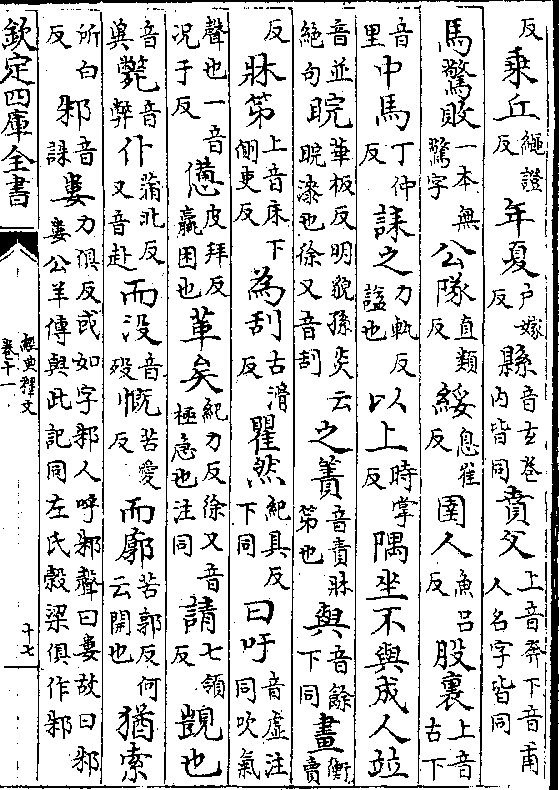 反乘丘繩證反年夏户嫁反縣音玄卷内皆同賁父上音奔下音甫人名字皆同
馬驚敗一本無驚字公隊直類反綏息隹反圉人魚呂反股裏上音古下
音里中馬丁仲反誄之力軌反謚也以上時掌反隅坐不與成人竝
音並絶句睆華板反明貌孫炎云睆漆也徐又音刮之簀音責牀笫也與音餘下同畫衡賣
反牀笫上音床下側吏反為刮古滑反瞿然紀具反下同曰吁音虛注同吹氣
聲也一音況于反憊皮拜反羸困也革矣紀力反徐又音極急也注同請七領反覬也
音兾斃音弊仆蒲北反又音赴而没音殁慨苦愛反而廓苦郭反何云開也猶索
所白反邾音誅婁力俱反或如字邾人呼邾聲曰婁故曰邾婁公羊傳與此記同左氏穀梁俱作邾
欽定四庫全書
經典釋文
卷十一
十七